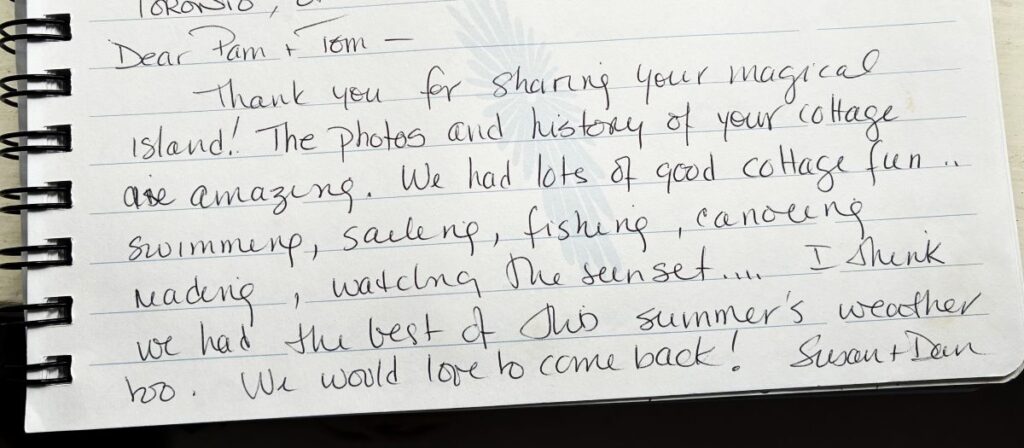 TORONTO,
Dear Pam + Tom —
Thank you for sharing your magical
island! The photos and history of your cottage
are amazing. We had lots of good cottage fun..
swimming, sailing, fishing, canoeing
reading, watching the sunset.... I think
we had the best of this summer's weather
too. We would love to come back! Susan + Dan